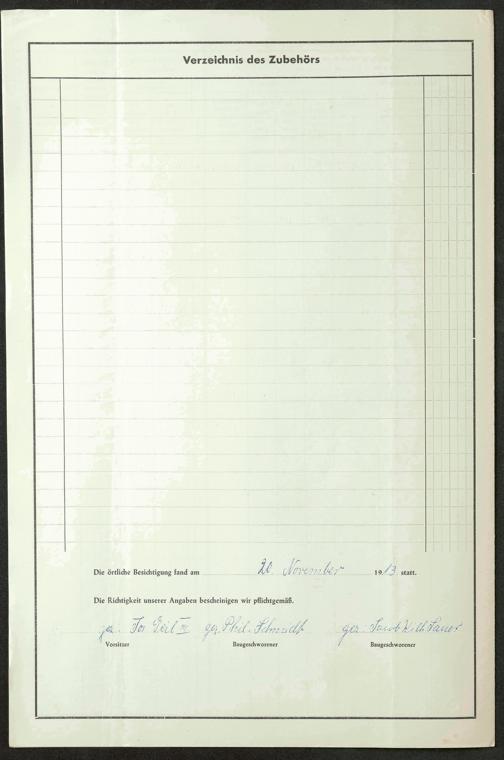 Verzeichnis des Zubehörs
Die örtliche Besichtigung fand am 20. November 1913 statt.
Die Richtigkeit unserer Angaben bescheinigen wir pflichtgemäß.
gez. Phil. Schmidt gez. Jacob Wilh. Sauer
Vorsitzer Baugeschworener Baugeschworener